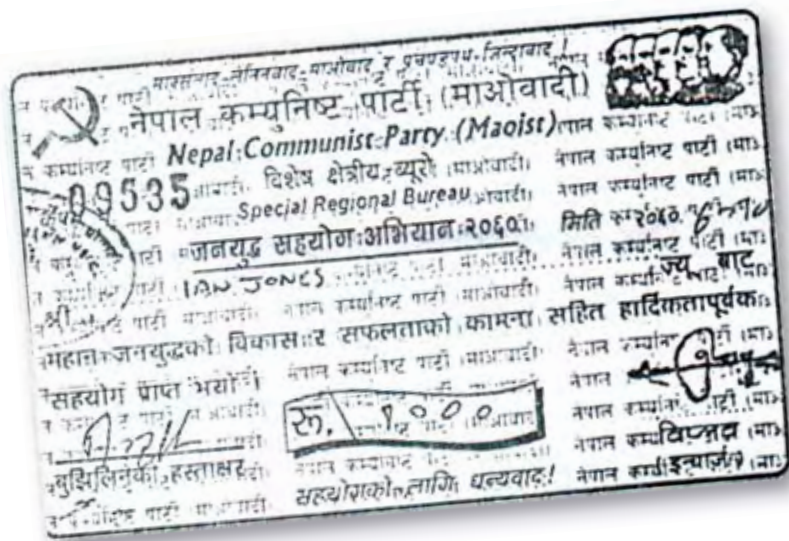 मार्क्सवाद-लेनिनवाद-माओवाद र प्रचण्डपथ-जिन्दावाद!
नेपाल कम्युनिष्ट पार्टी (माओवादी)
Nepal Communist Party (Maoist)
09535 विशेष क्षेत्रीय ब्यूरो
Special Regional Bureau
जनयुद्ध सहयोग अभियान २०६० मिति २०६०
श्री IAN JONES ज्यू बाट
महान जनयुद्धको विकास र सफलताको कामना सहित हार्दिकतापूर्वक
सहयोग प्राप्त भयो ।
रू. १०००
बुझिलिनेको हस्ताक्षर विप्लव
इन्चार्ज
सहयोगको लागि धन्यवाद!